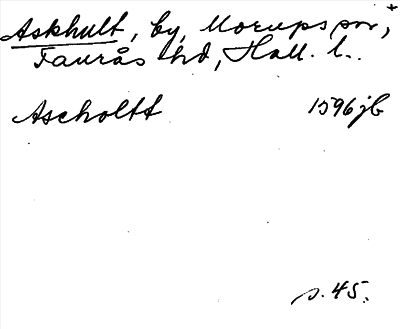 Askhult, by, Morups sn, *
Faurås hd, Hall. l..
Ascholtt 1596 jb
s. 45.